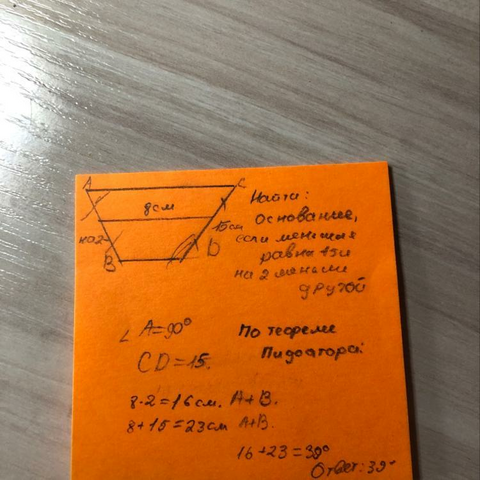 A C
8см
на 2
15см
B D
Найти:
Основание,
если меньшая
равна 15и
на 2 меньше
другой
∠ A=90°
По теореме
Пифагора:
CD=15.
8·2=16см. A+B.
8+15=23см A+B.
16+23=39°
Ответ:39°